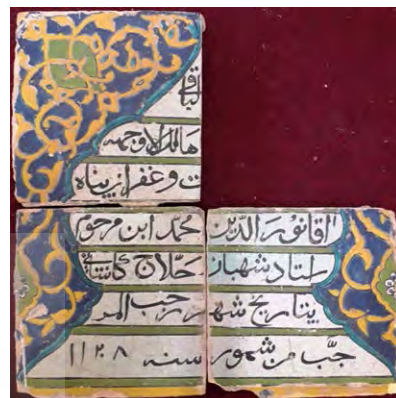 لباقی
هالك الا وجهه
ت و غفران پناه
اقا نور الدین محمد ابن مرحوم
ستاد شهباز حلاج کاشانی
بتاریخ شهر رجب المر
جّب من شهور سنه ۱۱۲۸